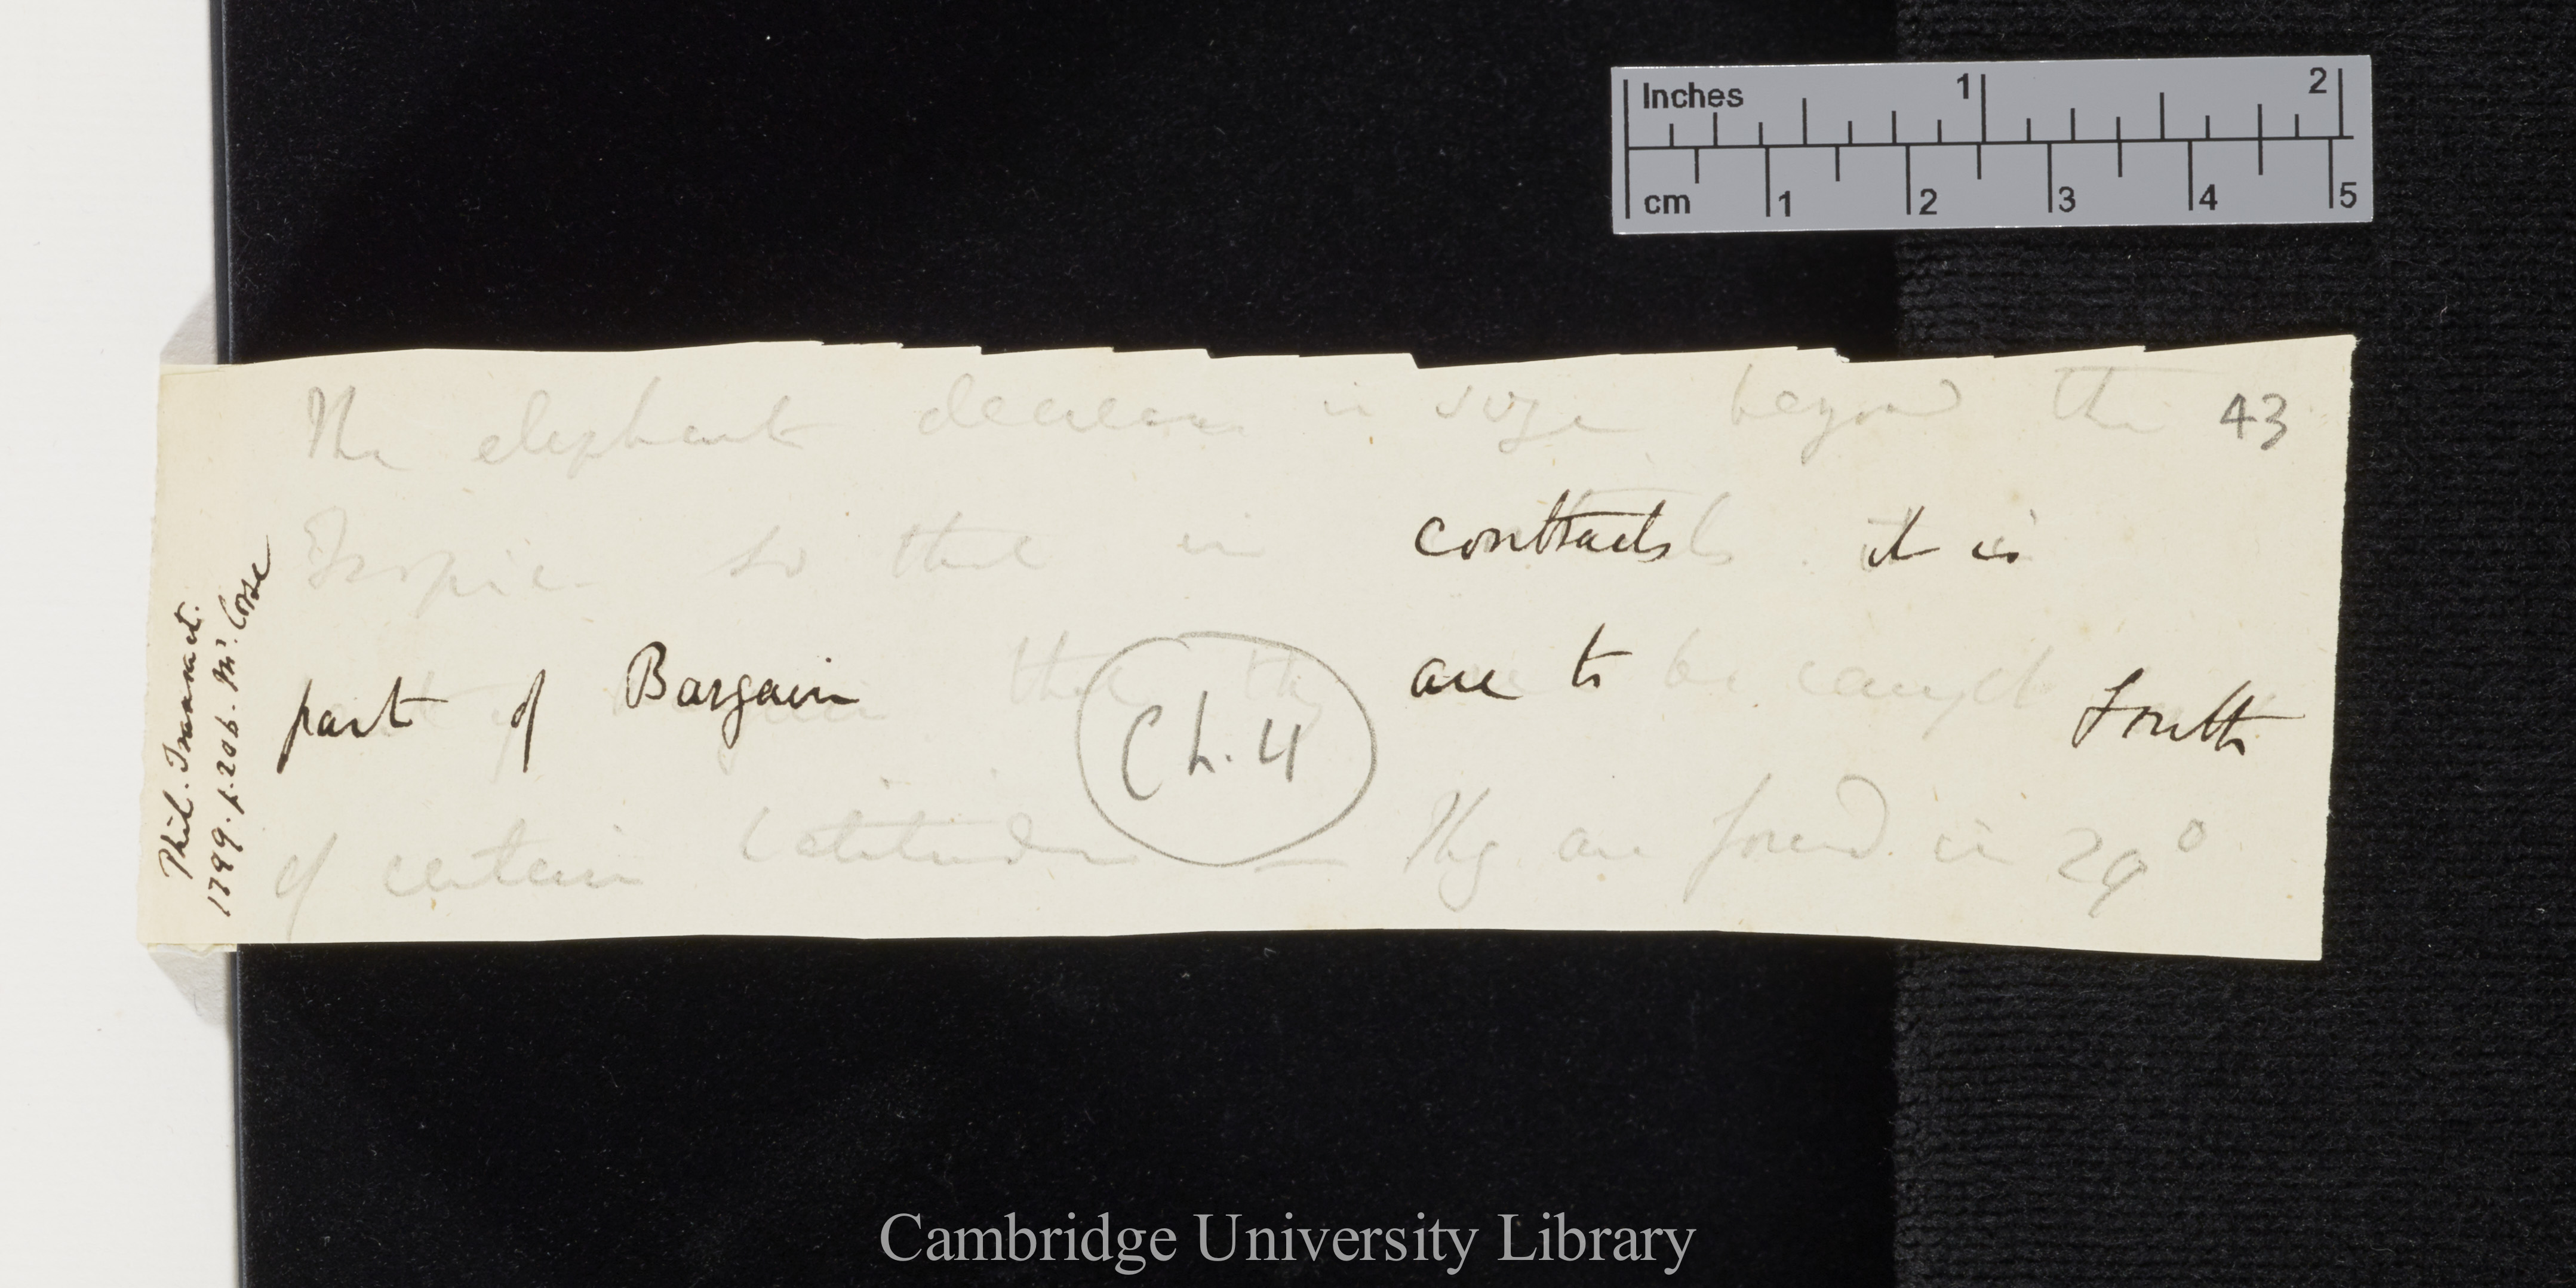 Inches 1 2
cm 1 2 3 4 5
43
The elephant decrease in size beyond the
Tropic so that in contracts it is
part of Bargain that they are to be caught South
of certain latitude — They are found in 29°
Ch. 4
Phil. Transact.
1799. p. 206. Mr. Corse
Cambridge University Library